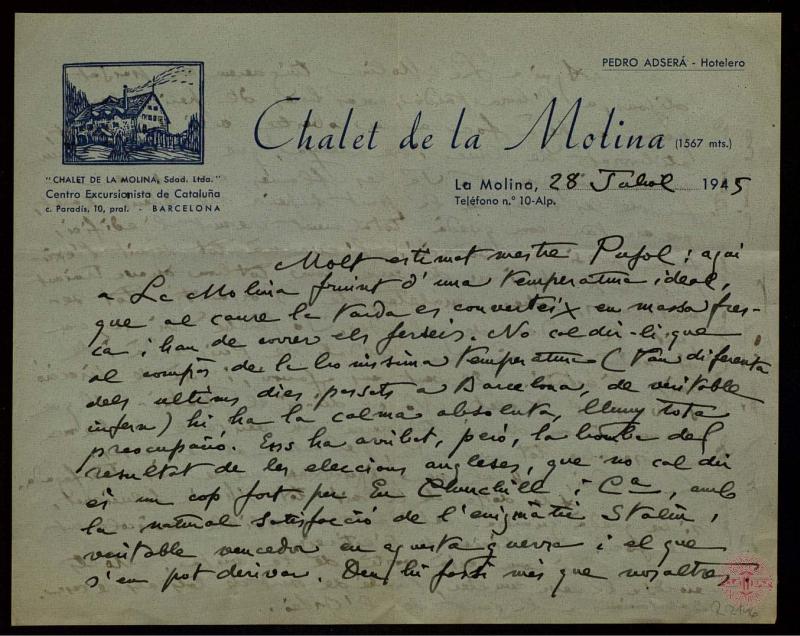 PEDRO ADSERÁ - Hotelero
Chalet de la Molina (1567 mts.)
"CHALET DE LA MOLINA, Sdad. Ltda."
Centro Excursionista de Cataluña
c. Paradís, 10, pral. - BARCELONA
La Molina, 28 Juliol 1945
Teléfono n.° 10-Alp.
Molt estimat mestre Pujol: aqui
a La Molina fruint d'una temperatura ideal,
que al caure la tarda es converteix en massa fres-
ca i han de correr els jerseis. No cal dir-li que
al compàs de la bonissima temperatura (tan diferenta
dels ultims dies passats a Barcelona, de veritable
infern) hi ha la calma absoluta, lluny tota
preocupació. Ens ha arribat, però, la bomba del
resultat de les eleccions angleses, que no cal dir
és un cop fort per En Churchill i Cª, amb
la natural satisfacció de l'enigmàtic Stalin,
veritable vencedor en aquesta guerra i el que
s'en pot derivar. Deu hi fassi més que nosaltres.